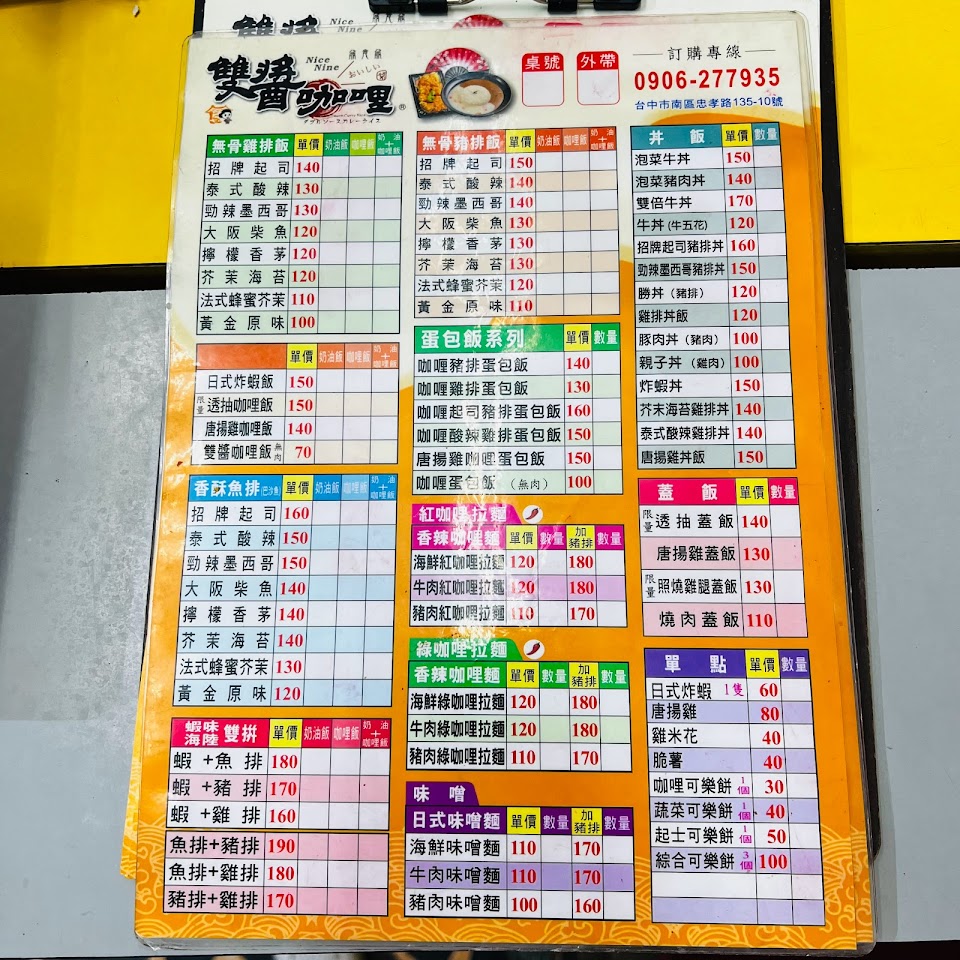 雙醬咖哩®
Nice Nine
おいしい
桌號
外帶
訂購專線
0906-277935
台中市南區忠孝路135-10號
無骨雞排飯 單價 奶油飯 咖哩飯 奶油+咖哩飯
招牌起司 140
泰式酸辣 130
勁辣墨西哥 130
大阪柴魚 120
檸檬香茅 120
芥茉海苔 120
法式蜂蜜芥茉 110
黃金原味 100
單價 奶油飯 咖哩飯 奶油+咖哩飯
日式炸蝦飯 150
限量 透抽咖哩飯 150
唐揚雞咖哩飯 140
雙醬咖哩飯 無肉 70
香酥魚排(巴沙魚) 單價 奶油飯 咖哩飯 奶油+咖哩飯
招牌起司 160
泰式酸辣 150
勁辣墨西哥 150
大阪柴魚 140
檸檬香茅 140
芥茉海苔 140
法式蜂蜜芥茉 130
黃金原味 120
蝦味海陸 雙拚 單價 奶油飯 咖哩飯 奶油+咖哩飯
蝦+魚排 180
蝦+豬排 170
蝦+雞排 160
魚排+豬排 190
魚排+雞排 180
豬排+雞排 170
無骨豬排飯 單價 奶油飯 咖哩飯 奶油+咖哩飯
招牌起司 150
泰式酸辣 140
勁辣墨西哥 140
大阪柴魚 130
檸檬香茅 130
芥茉海苔 130
法式蜂蜜芥茉 120
黃金原味 110
蛋包飯系列 單價 數量
咖喱豬排蛋包飯 140
咖喱雞排蛋包飯 130
咖喱起司豬排蛋包飯 160
咖喱酸辣雞排蛋包飯 150
唐揚雞咖哩蛋包飯 150
咖喱蛋包飯(無肉) 100
紅咖哩拉麵
香辣咖哩麵 單價 數量 加豬排 數量
海鮮紅咖哩拉麵 120 180
牛肉紅咖哩拉麵 120 180
豬肉紅咖哩拉麵 110 170
綠咖哩拉麵
香辣咖哩麵 單價 數量 加豬排 數量
海鮮綠咖哩拉麵 120 180
牛肉綠咖哩拉麵 120 180
豬肉綠咖哩拉麵 110 170
味噌
日式味噌麵 單價 數量 加豬排 數量
海鮮味噌麵 110 170
牛肉味噌麵 110 170
豬肉味噌麵 100 160
丼飯 單價 數量
泡菜牛丼 150
泡菜豬肉丼 140
雙倍牛丼 170
牛丼(牛五花) 120
招牌起司豬排丼 160
勁辣墨西哥豬排丼 150
勝丼(豬排) 120
雞排丼飯 120
豚肉丼(豬肉) 100
親子丼(雞肉) 100
炸蝦丼 150
芥末海苔雞排丼 140
泰式酸辣雞排丼 140
唐揚雞丼飯 150
蓋飯 單價 數量
限量 透抽蓋飯 140
唐揚雞蓋飯 130
限量 照燒雞腿蓋飯 130
燒肉蓋飯 110
單點 單價 數量
日式炸蝦 1隻 60
唐揚雞 80
雞米花 40
脆薯 40
咖哩可樂餅 1個 30
蔬菜可樂餅 1個 40
起士可樂餅 1個 50
綜合可樂餅 3個 100